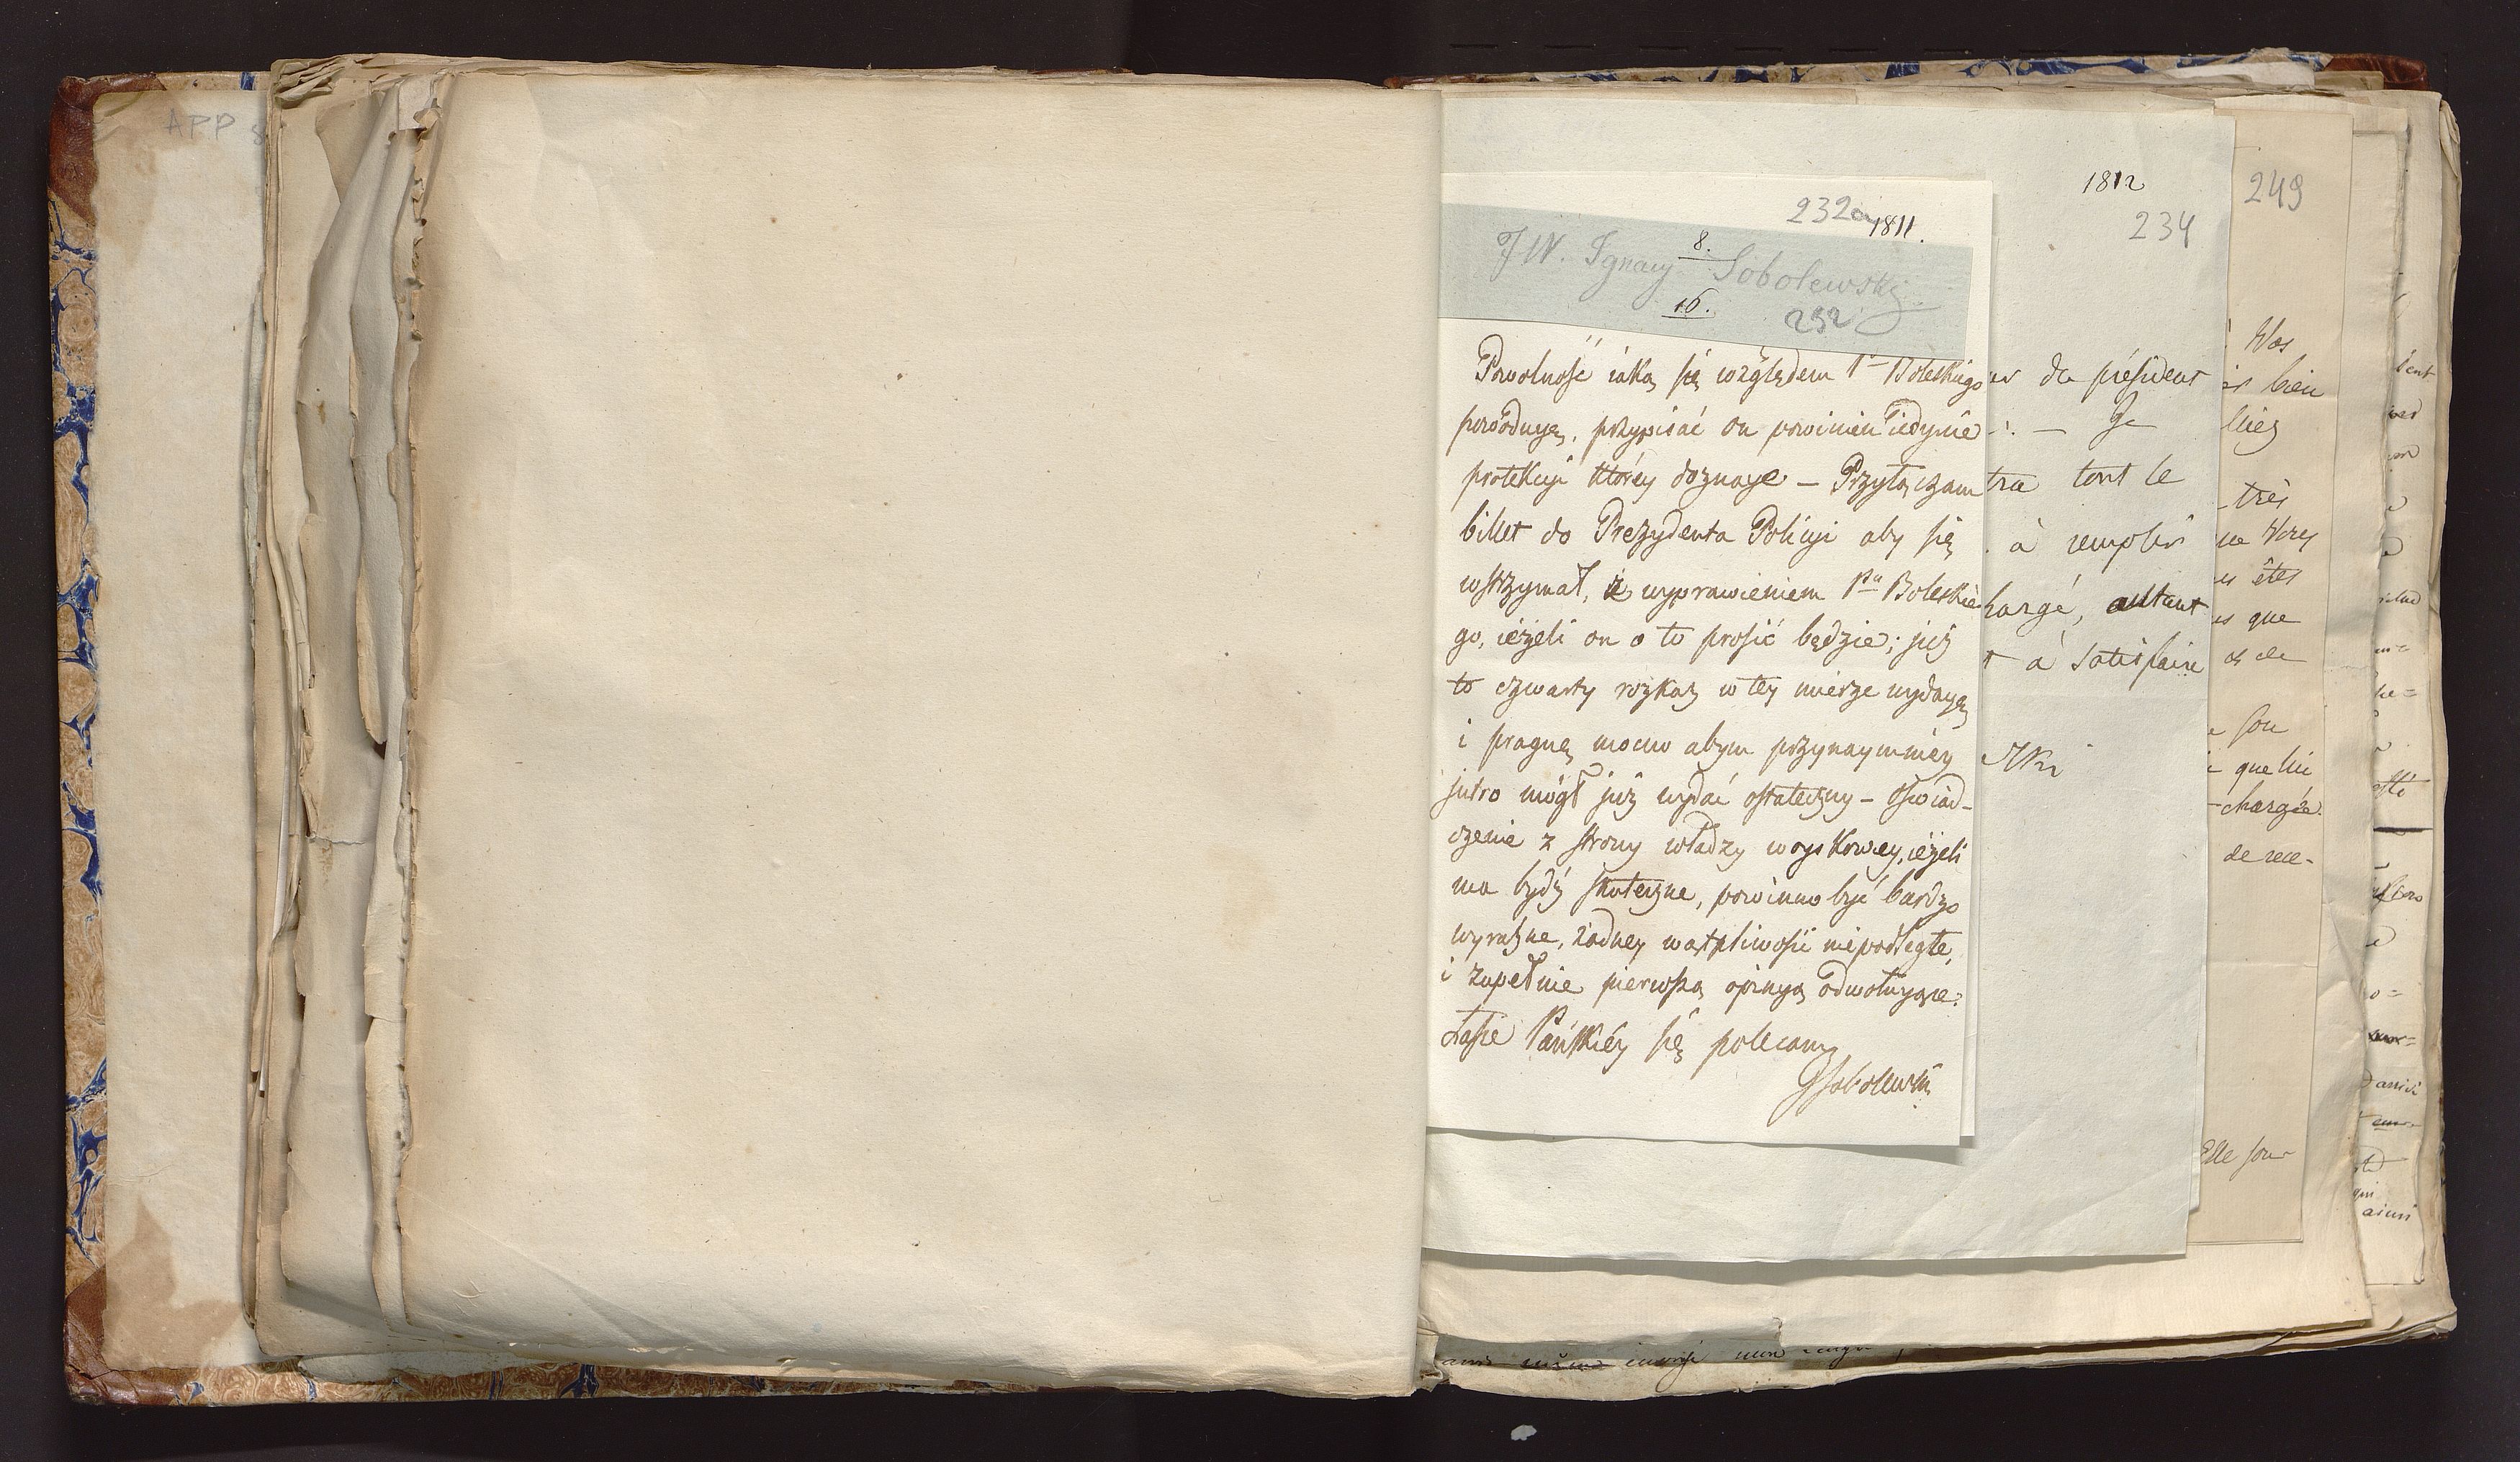 APP 8
232a 1811.
8.
JW. Ignacy Sobolewski
16.
232
Powolność iaką się względem Pa Boleskiego
powoduyę, przypisać on powinien iedynie
protekcyi którey doznaye – Przyłączam
billet do Prezydenta Policyi aby się
wstrzymał, z wyprawieniem Pa Boleskie
go, ieżeli on o to prosić będzie; już
to czwarty rozkaz w tey mierze wydayę
i pragnę mocno abym przynaymniéy
jutro mógł już wydać ostateczny – Oświad-
czenie z strony władzy woyskowey, ieżeli
ma bydź skuteczne, powinno być bardzo
wyraźne, żadney wątpliwości niepodległe,
i zupełnie pierwszą opinyą odwołuyące.
Łasce Pańskiéy się polecam
JSobolewski
1812
234
du président
Je
tra tout le
à remplir
hargé, autant
t à satisfaire
Ski
249
Vos
bien
liez
très
ne Vory
êtes
que
de
son
que lui
chargée
de rece-
Elle sous
ainsi
ainsi